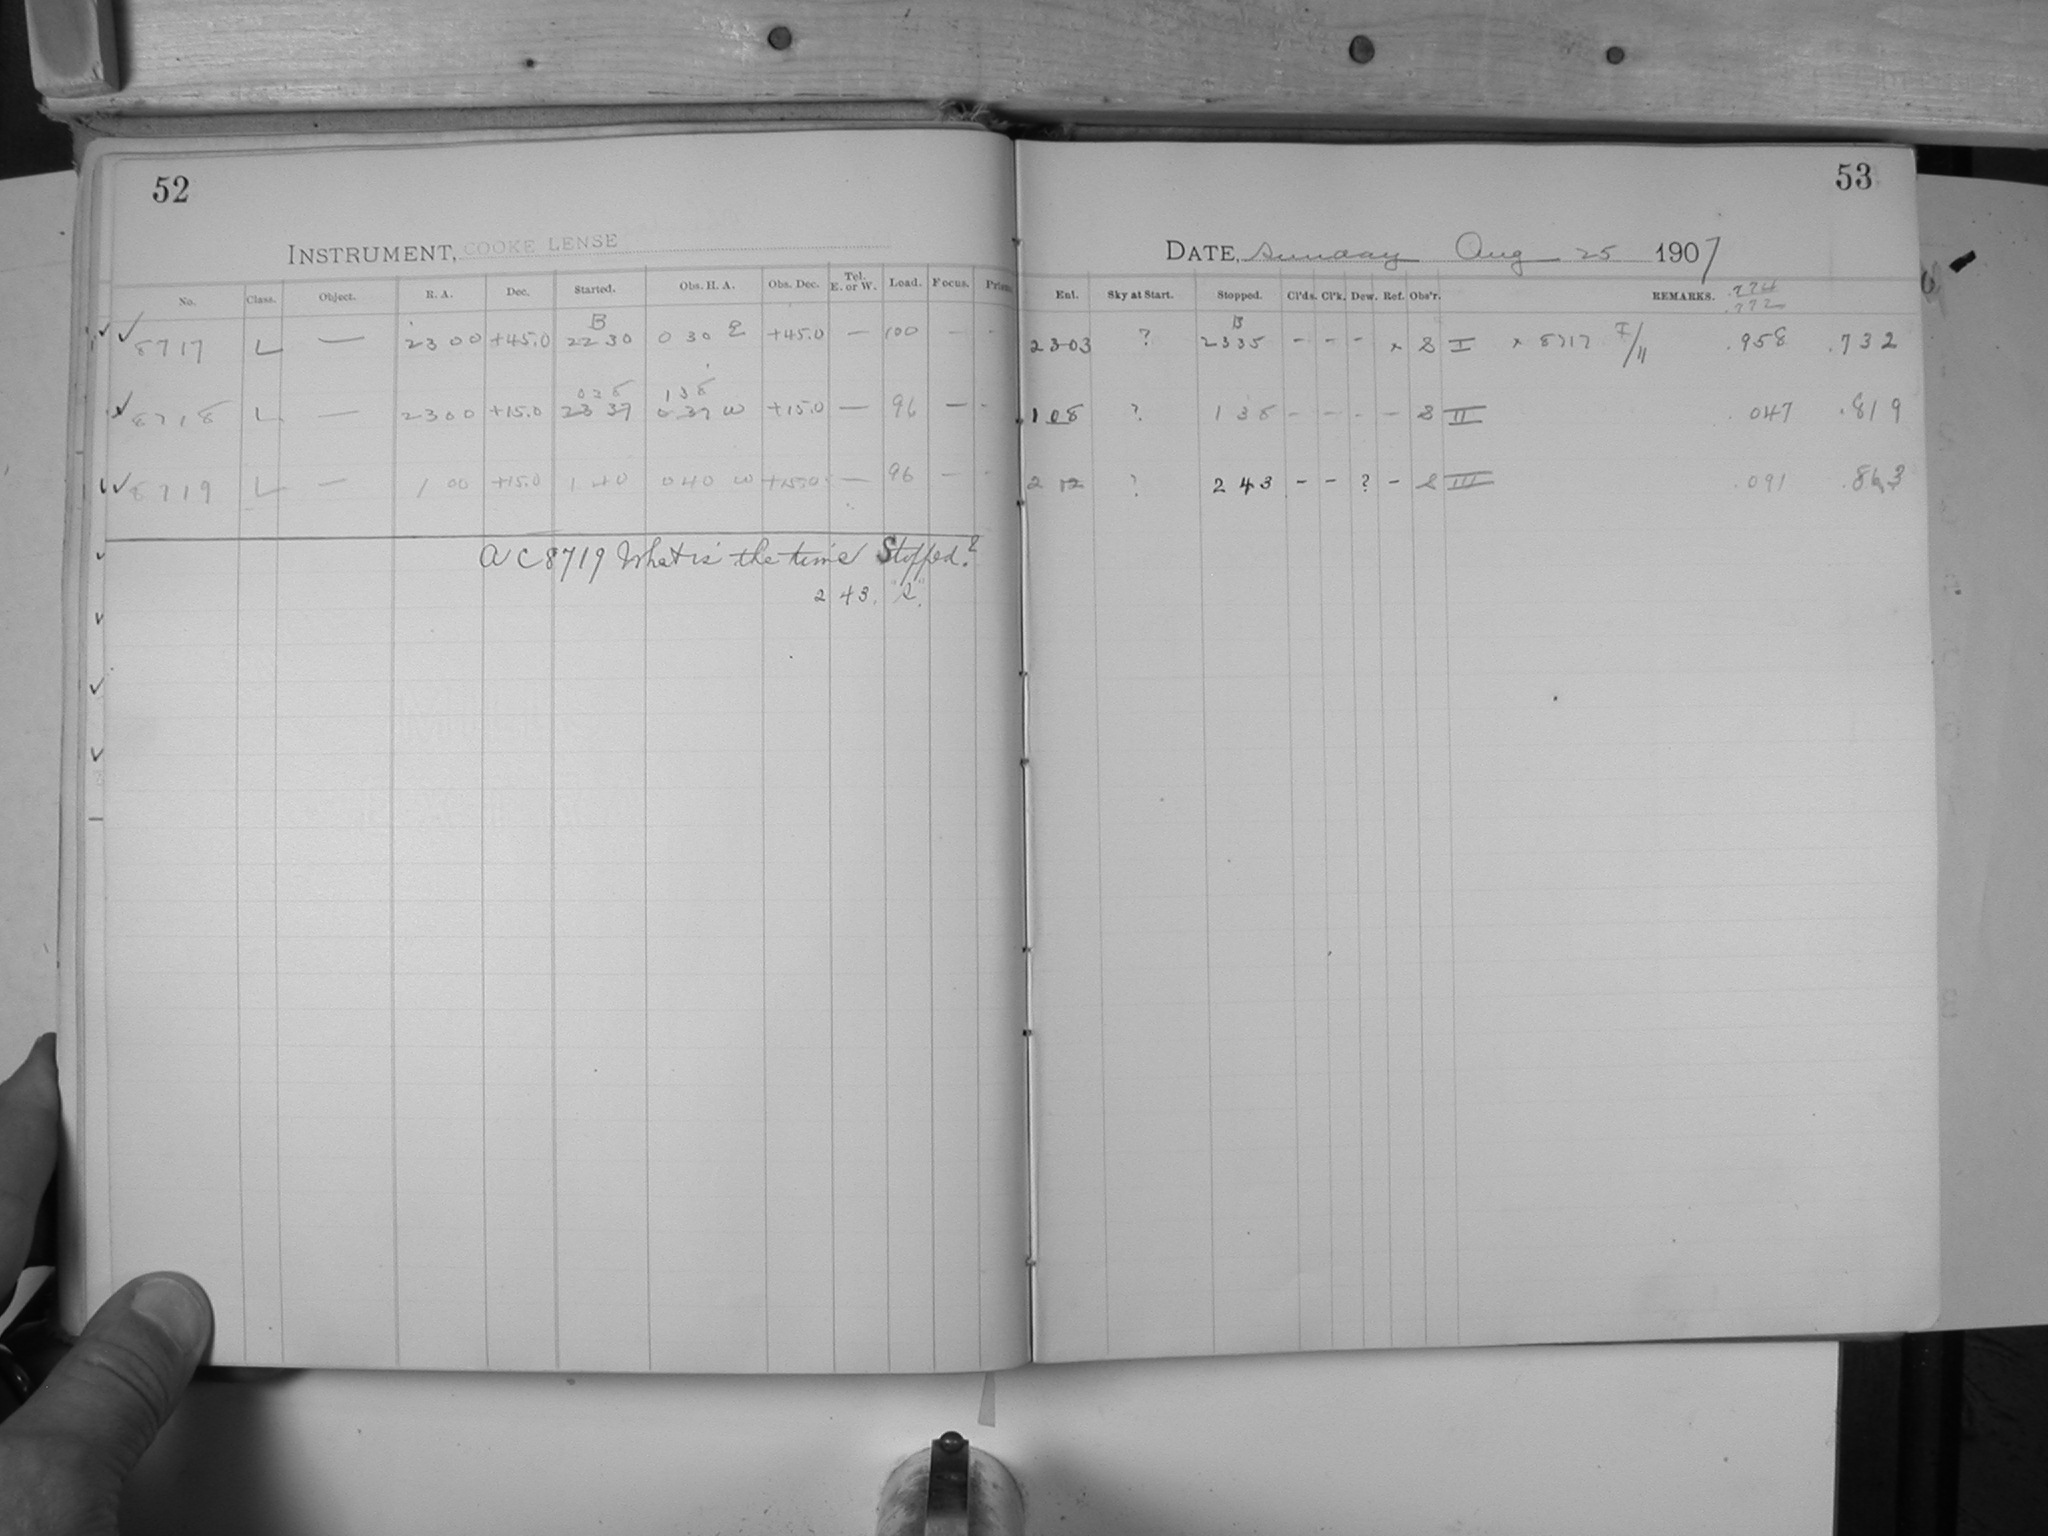 52
INSTRUMENT, COOKE LENSE
No. Class. Object. R. A. Dec. Started. Obs. H. A. Obs. Dec. Tel. E. or W. Load. Focus.
B
8717 L — 23 00 +45.0 22 30 0 30 E +45.0 — 100 — -
0 38 1 38
8718 L — 23 00 +15.0 23 37 0 37 W +15.0 — 96 — -
8719 L — 1 00 +15.0 1 40 0 40 W +15.0 — 96 — -
A C 8719 What is the time Stopped?
2 43. "S."
53
DATE, Sunday Aug 25 1907
Ent. Sky at Start. Stopped. Cl'ds. Cl'k. Dew. Ref. Obs'r. REMARKS. .774
.772
B
23 03 ? 23 35 - - - x S I x 8717 I/II .958 .732
1 08 ? 1 38 - - - - S II .047 .819
2 12 ? 2 43 - - ? - S III .091 .863